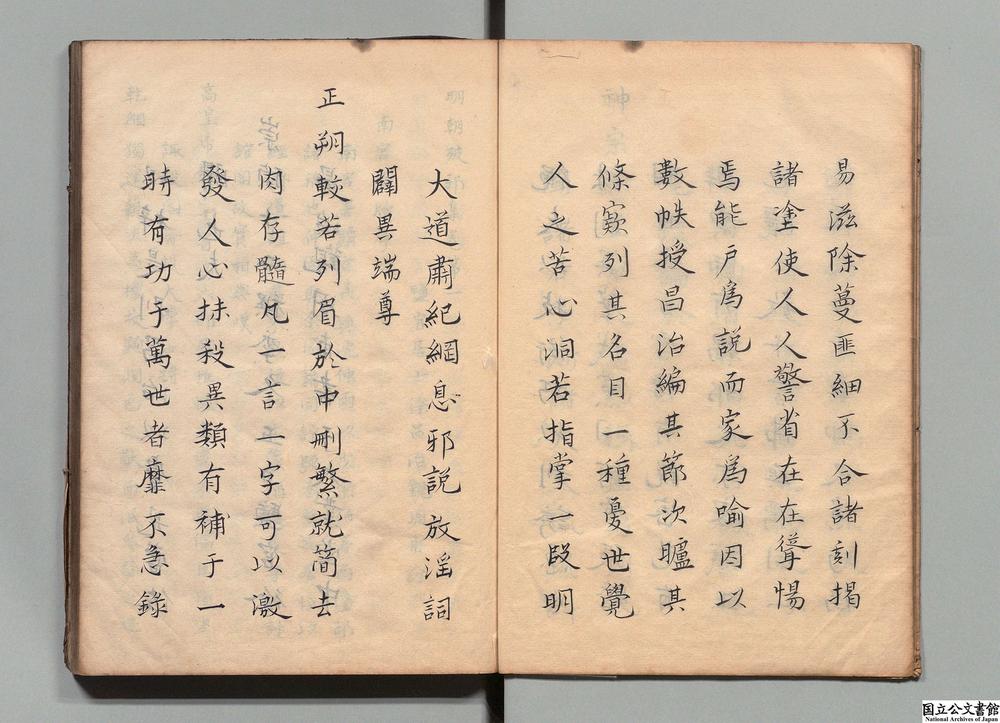 易滋除蔓匪細不合諸刻揭
諸塗使人人警省在在聳惕
焉能戶爲說而家爲喻因以
數帙授昌治編其節次臚其
條欵列其名目一種憂世覺
人之苦心洞若指掌一段明
大道肅紀綱息邪說放淫詞
闢異端尊
正朔較若列眉於中刪繁就簡去
肉存髓凡一言一字可以激
發人心抹殺異類有補于一
時有功于萬世者靡不急錄
国立公文書館
National Archives of Japan